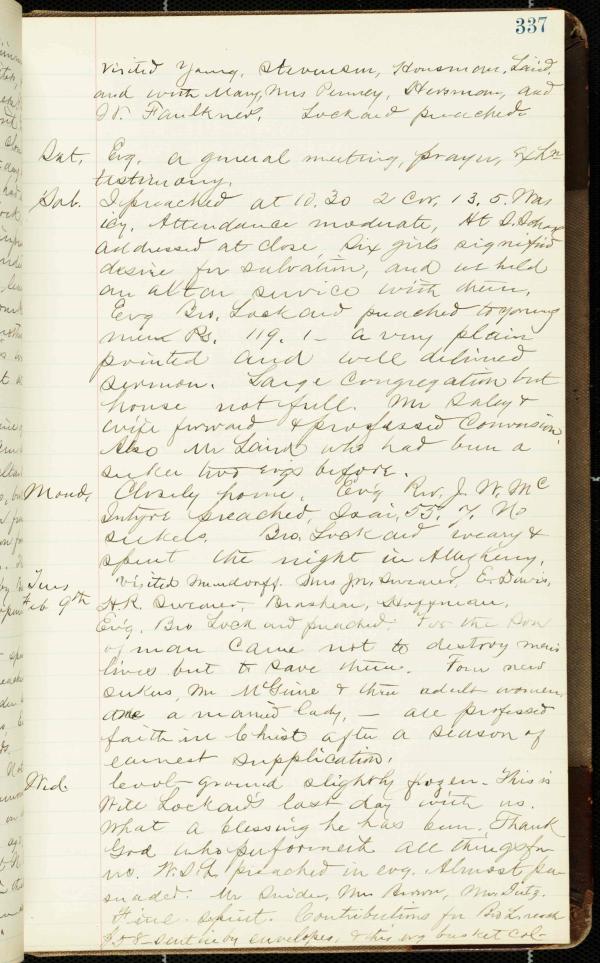 337
visited Young, Stevenson, Housman, Laird,
and with Mary, Mrs Penney, Hersman, and
W. Faulkner. Lockard preached.
Sat. Evg. a general meeting, prayer, Exhn
testimony.
Sab. I preached at 10.30 2 Cor. 13.5. Was
icy. Attendance moderate. At S. School
addressed at close. Six girls signified
desire for salvation, and we held
an altar service with them.
Evg Bro. Lockard preached to young
men Ps. 119. 1 – a very plain
pointed and well delivered
sermon. Large congregation but
house not full. Mr &
wife forward & professed Conversion.
Also Mr Laird who had been a
seeker two evgs before.
Mond. Closely home. Evg Rev. J. W. Mc
Intyre preached, Isai, 55. 7. No
seekers. Bro. Lockard weary &
spent the night in Allegheny.
Tues Visited Mundorff. Mrs Jno. Swearer, E. Davis,
Feb 9th H.R. Swearer, Brashear, Hoffman.
Evg. Bro Lockard preached. For the Son
of man came not to destroy men's
lives but to save them. Four new
seekers, Mr McGuire & three adult women
one a married lady, – all professed
faith in Christ after a season of
earnest supplication.
Wed. Cool – ground slightly frozen – This is
Will Lockard's last day with us.
What a blessing he has been. Thank
God who performeth all things for
us. W.S.L preached in evg. Almost per
suaded. Mr Snider, Mrs Brown, Mrs
Fine spirit. Contributions for Bro L. reach
$58 – sent in by envelopes, & this evg basket col-